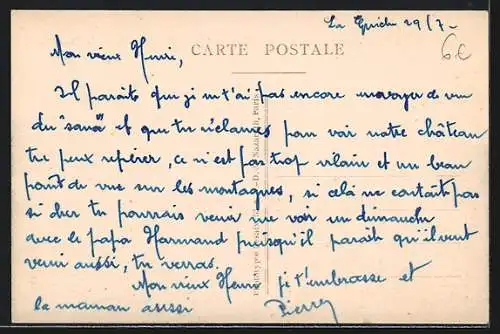 La Guiche 29/7-
6€
CARTE POSTALE
Mon vieux Henri,
Il parait que je n t'ai pas encore envoyer de vue
du "sana" et que tu réclames pour voir notre château
tu peux repérer, ce n'est pas trop vilain et un beau
point de vue sur les montagnes, si celà ne coutait pas
si cher tu pourrais venir me voir un dimanche
avec le papa Harmand puisqu'il parait qu'il veut
venir aussi, tu verras.
Mon vieux Henri je t'embrasse et
la maman aussi
Pierre